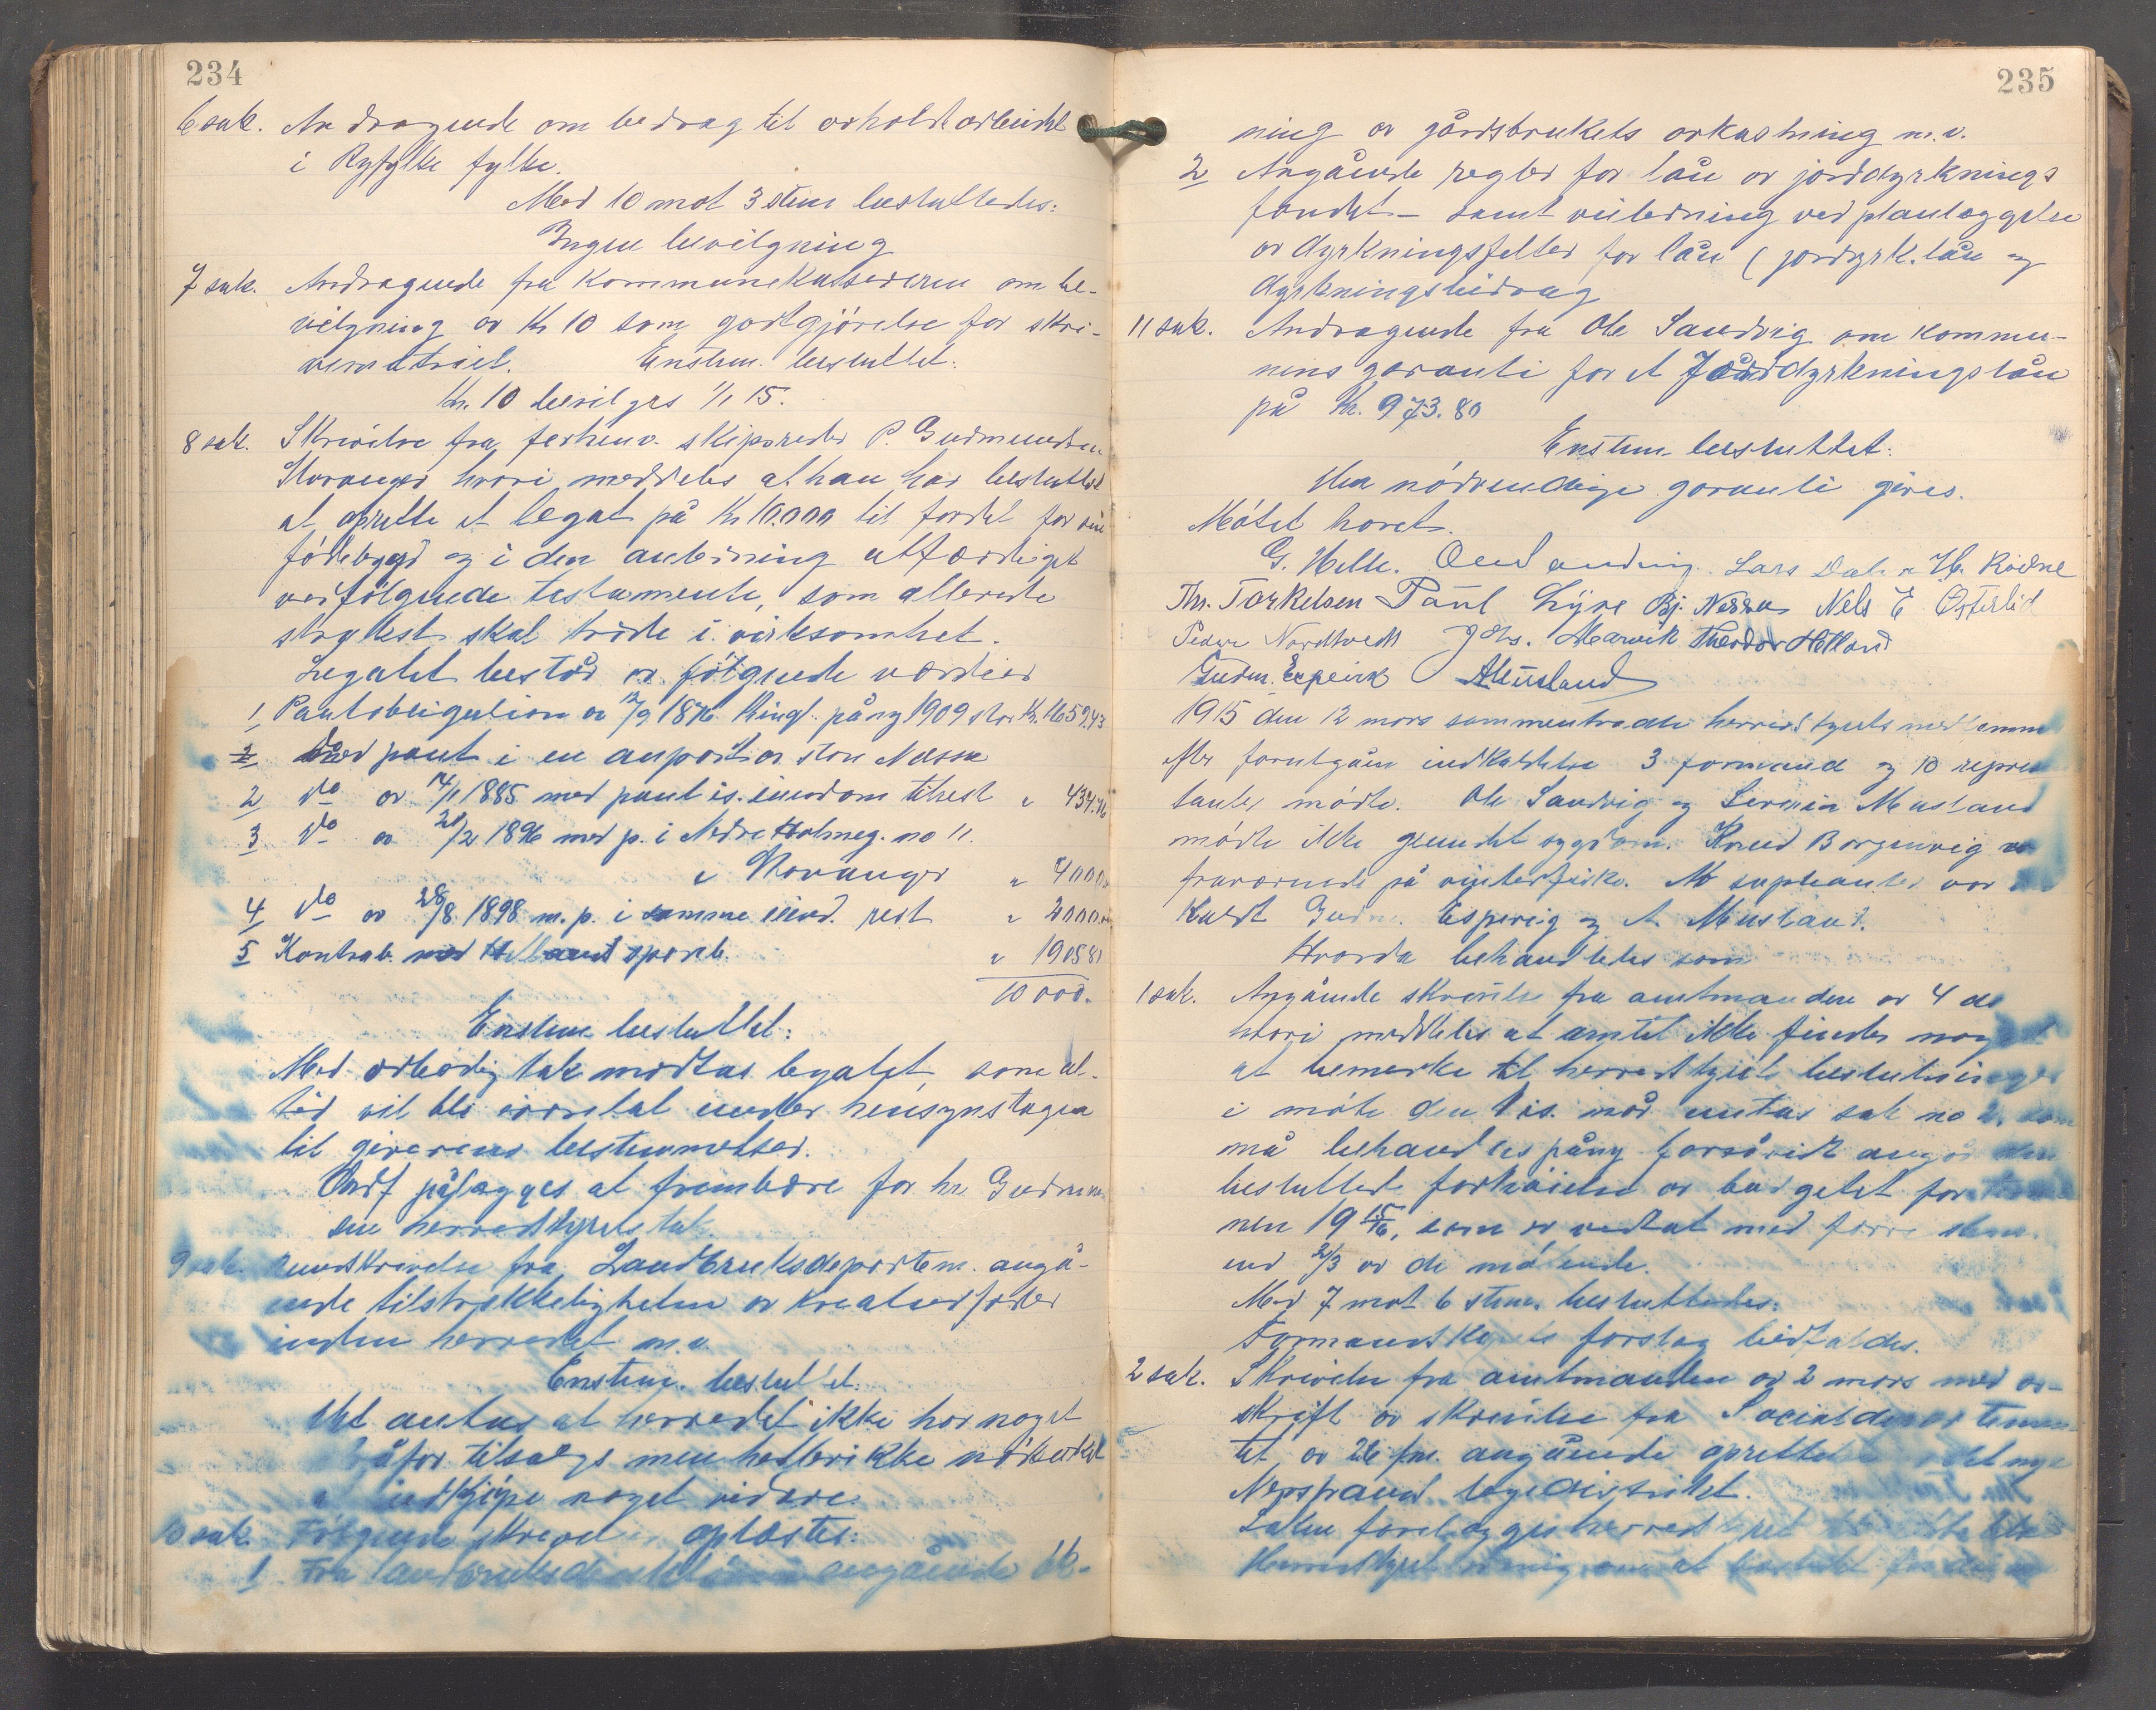 234
6 sak. Andragende om bedrag til avholdsarbeidet
i Ryfylke fylke.
Med 10 mot 3 stem besluttedes:
Ingen bevilgning
7 sak. Andragende fra Kommunekassereren om be-
vilgning av Kr 10 som godtgjörelse for skri-
vematriel. Enstem. besluttet:
Kr. 10 bevilges 1/1 15.
8 sak. Skrivelse fra forhenv. skipsreder P. Gudmundsen
Stavanger hvori meddeles at han har besluttet
at oprette et legat på Kr 10.000 til fordel for sin
födebygd og i den anledning utfærdiget
vedfölgende testamente, som allerede
straks skal træde i virksomhet.
Legatet består av fölgende værdier
1 Pantobligation av 12/9 1876 tingl. påny 1909 stor Kr. 1659,43
2 Med pant i en anpart av Store Nessa
2 do av 14/11 1885 med pant i s. eiendom tilrest " 434.76
3 do av 20/2 1896 med p. i Nedre Holmeg. no 11.
i Stavanger " 4000.
4 do av 28/8 1898 m. p. i samme eiend. rest " 2000.
5 Kontrab. med Helland spareb. " 1905 81
10 000.
Enstem besluttet:
Med ærbödig tak modtas legatet, som al-
tid vil bli ivaretat under hensynstagen
til giverens bestemmelser.
Ordf pålægges at frembære for hr. Gudmund
sen herredstyrets tak.
9 sak. Rundskrivelse fra Landbruksdepartem. angå-
ende tilstrækkeligheten av kreaturfoder
inden herredet m.v.
Enstem. besluttet:
Det antas at herredet ikke har noget
tilsalgs men heller ikke nödvendig
at indkjöpe noget videre.
10 sak. Fölgende skrivelser oplæstes:
1 Fra landbruksdirektören angående ut-
235
ning av gårdsbrukets avkastning m.v.
2 Angående regler for lån av jorddyrknings
fondet – samt veiledning ved planlæggelse
av dyrkningsfelter for lån (jordyrk. lån og
dyrkningsbidrag
11 sak. Andragende fra Ole Sandvig om kommu-
nens garanti for et Jorddyrkningslån
på Kr. 973.80
Enstem besluttet:
Den nödvendige garanti gives.
Mötet hævet.
G. Helle. Lars Dale H. Rödne
Thr. Torkelsen Paul Lyse Bj. Nessa Nels E Österlid
Peder Nordtvedt Johs. Marvik Theodor Helland
Gudm. Espevik A Musland
1915 den 12 mars sammentraadte herredstyrets medlemmer
efter forutgåen indkaldelse 3 formænd og 10 repræsen
tanter mödte. Ole Sandvig og Severin Musland
mödte ikke grundet sygdom. Knud Borgenvig var
fraværende på vinterfiske. Av suplanter var
kaldt Gudm. Espevig og A. Musland.
Hvorda behandledes som
1 sak. Angående skrivelse fra amtmanden av 4 ds
hvori meddeles at amtet ikke finder noget
at bemerke til herredstyrets beslutninger
i möte den 1 is. mår untas sak no 2, som
må behandles påny forsåvidt angår den
besluttede forhöielse av budgettet for
nen 1915/16, som er vedtat med færre stem.
end 2/3 av de mötende.
Med 7 mot 6 stem. besluttedes:
Formandskapets forslag bifaldes.
2 sak. Skrivelse fra amtmanden av 2 mars med av-
skrift av skrivelse fra Socialdepartemen-
tet av 26 fm. angående oprettelse av det nye
Nerstrand lægedistrikt.
Saken forelægges herredstyret
Herredstyret